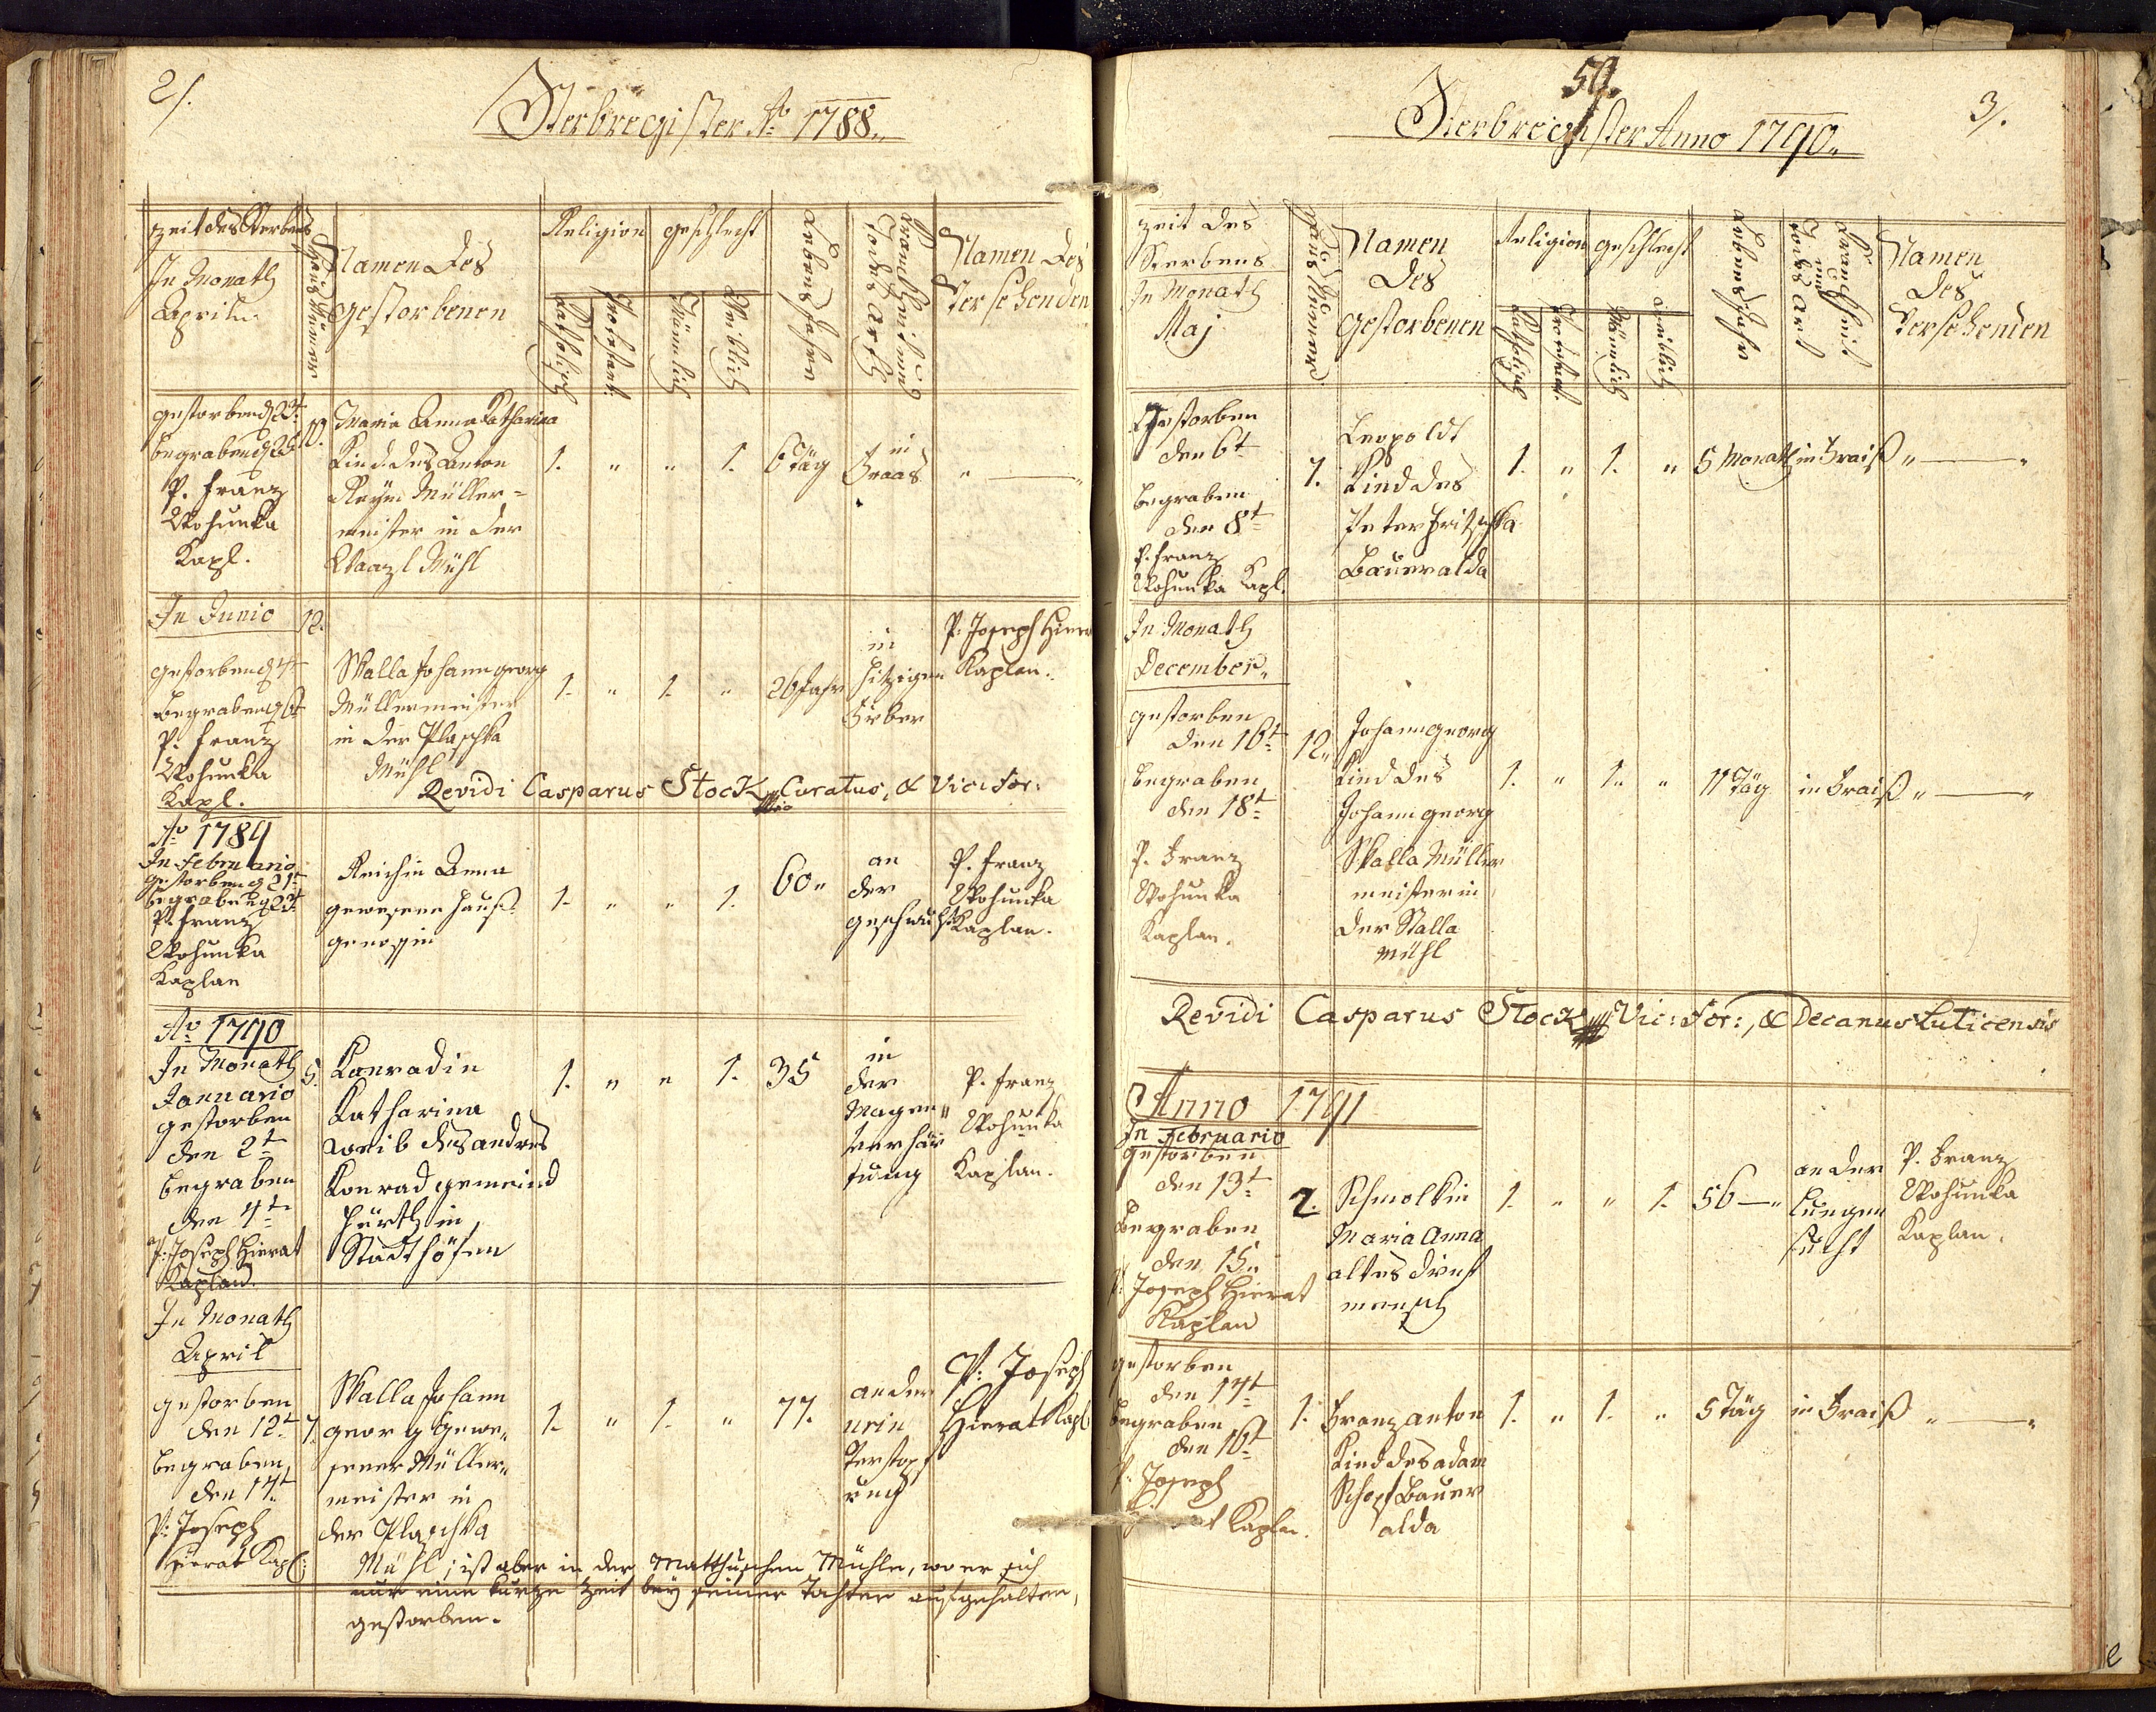 2/.
Sterbregister Aō 1788.
zeit des Sterbens
In Monath
April
Haus Nūmer
Namen Des
gestorbenen
Religion
Katholisch
Protestant
geschlecht
Mänlich
Weiblich
Lebens Jahre
Krankheit und
Todes Arth
Namen Des
Versehenden
gestorben d 23t
begraben d 25t
P. Franz
Wohunka
Kapl.
10.
Maria Anna Katharina
Kind des Anton
Müller=
meister in der
Mühl
1. " " 1.
6 Täg
in
Fraas
"
In Junio
12.
gestorben d 4t
begraben d 6t
P. Franz
Wohunka
Kapl.
Skalla Johann georg
Müllermeister
in der Plaschka
Mühl
1. " 1. "
26 Jahr
in
hitzigen
Fieber
P. Joseph Hierat
Kaplan.
Revidi Casparus Stock Curatus, & Vic: For:
Aō 1789
In Februario
gestorben d 21t
begraben d 23t
P. Franz
Wohunka
Kaplan
Reichin Anna
gewesene Hauß=
genossin
1. " " 1.
60"
an
der
geschwulst
P. Franz
Wohunka
Kaplan.
Aō 1790
In Monath
Januario
gestorben
den 2t
begraben
den 4t
P: Joseph Hierat
Kaplan.
5.
Konradin
Katharina
weib des andres
Konrad gemeind
Hürth in
Stadthöfen
1. " " 1.
35
in
der
Magen"
verhär
tung
P. Franz
Wohunka
Kaplan.
In Monath
April
gestorben
den 12t
begraben
den 14t
P: Joseph
Hierat Kapl:
7.
Skalla Johann
georg gewe„
sener Müller„
meister in
der Plaschka
Mühl; ist aber in der Matthuschen Mühle, wo er sich
nur eine kurze Zeit bey seiner Tochter aufgehalten,
gestorben.
1. " 1. "
77.
an der
urin
Verstopf
ung
P: Joseph
Hierat Kapl
50.
3/.
Sterbregister Anno 1790.
zeit des
Sterbens
In Monath
Maj
Haus Numero
Namen
Des
gestorbenen
Religion
Katholisch
Protestant.
geschlecht
Mänlich
weiblich
Lebens Jahr
Krankheit
und
Todes Art
Namen
Des
Versehenden
Gestorben
den 6t
begraben
den 8t
P. Franz
Wohunka Kapl.
7.
Leopoldt
Kind des
Peter Fritschka
Bauer alda
1. " 1. "
5 Monath
in Fraiß
" — "
In Monath
December„
gestorben
den 16t
begraben
den 18t
P. Franz
Wohunka
Kaplan.
12„
Johann georg
Kind des
Johann georg
Skalla Müller
meister in
der Skalla
mühl
1. " 1. "
11 Täg
in Fraiß
" — "
Revidi Casparus Stock Vic: For:, & Decanus Luticensis
Anno 1791
In Februario
gestorben
den 13t
Begraben
den 15„
P: Joseph Hierat
Kaplan
2.
Schmolkin
Maria Anna
altes dienst
mensch
1. " " 1.
56 — "
an der
Lungen
sucht
P. Franz
Wohunka
Kaplan.
gestorben
den 14t
Begraben
den 16t
P. Joseph
Hierat Kaplan.
1.
Franz anton
Kind des adam
Schopf Bauer
alda
1. " 1. "
5 Täg
in Fraiß
" — "